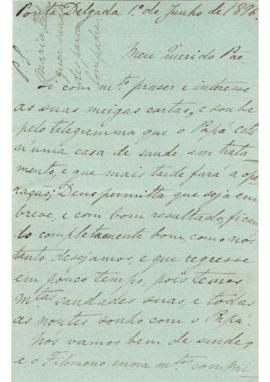 Ponta Delgada 1º de Junho de 1896
Meu Querido Pae
Li com mto praser e interesse
as suas meigas cartas, e soube
pelo telegramma que o Papá está
n'uma casa de saude em trata
mento, e que mais tarde fará a ope
ração; Deus permitta que seja em
breve, e com bom resultado, fican
do completamente bom, como nós
tanto desejamos, e que regresse
em pouco tempo, pois temos
mtas saudades suas, e todas
as noutes sonho com o Papá.
Nós vamos bem de saude,
e o Filomeno envia mtos compri
P.S.
Maria